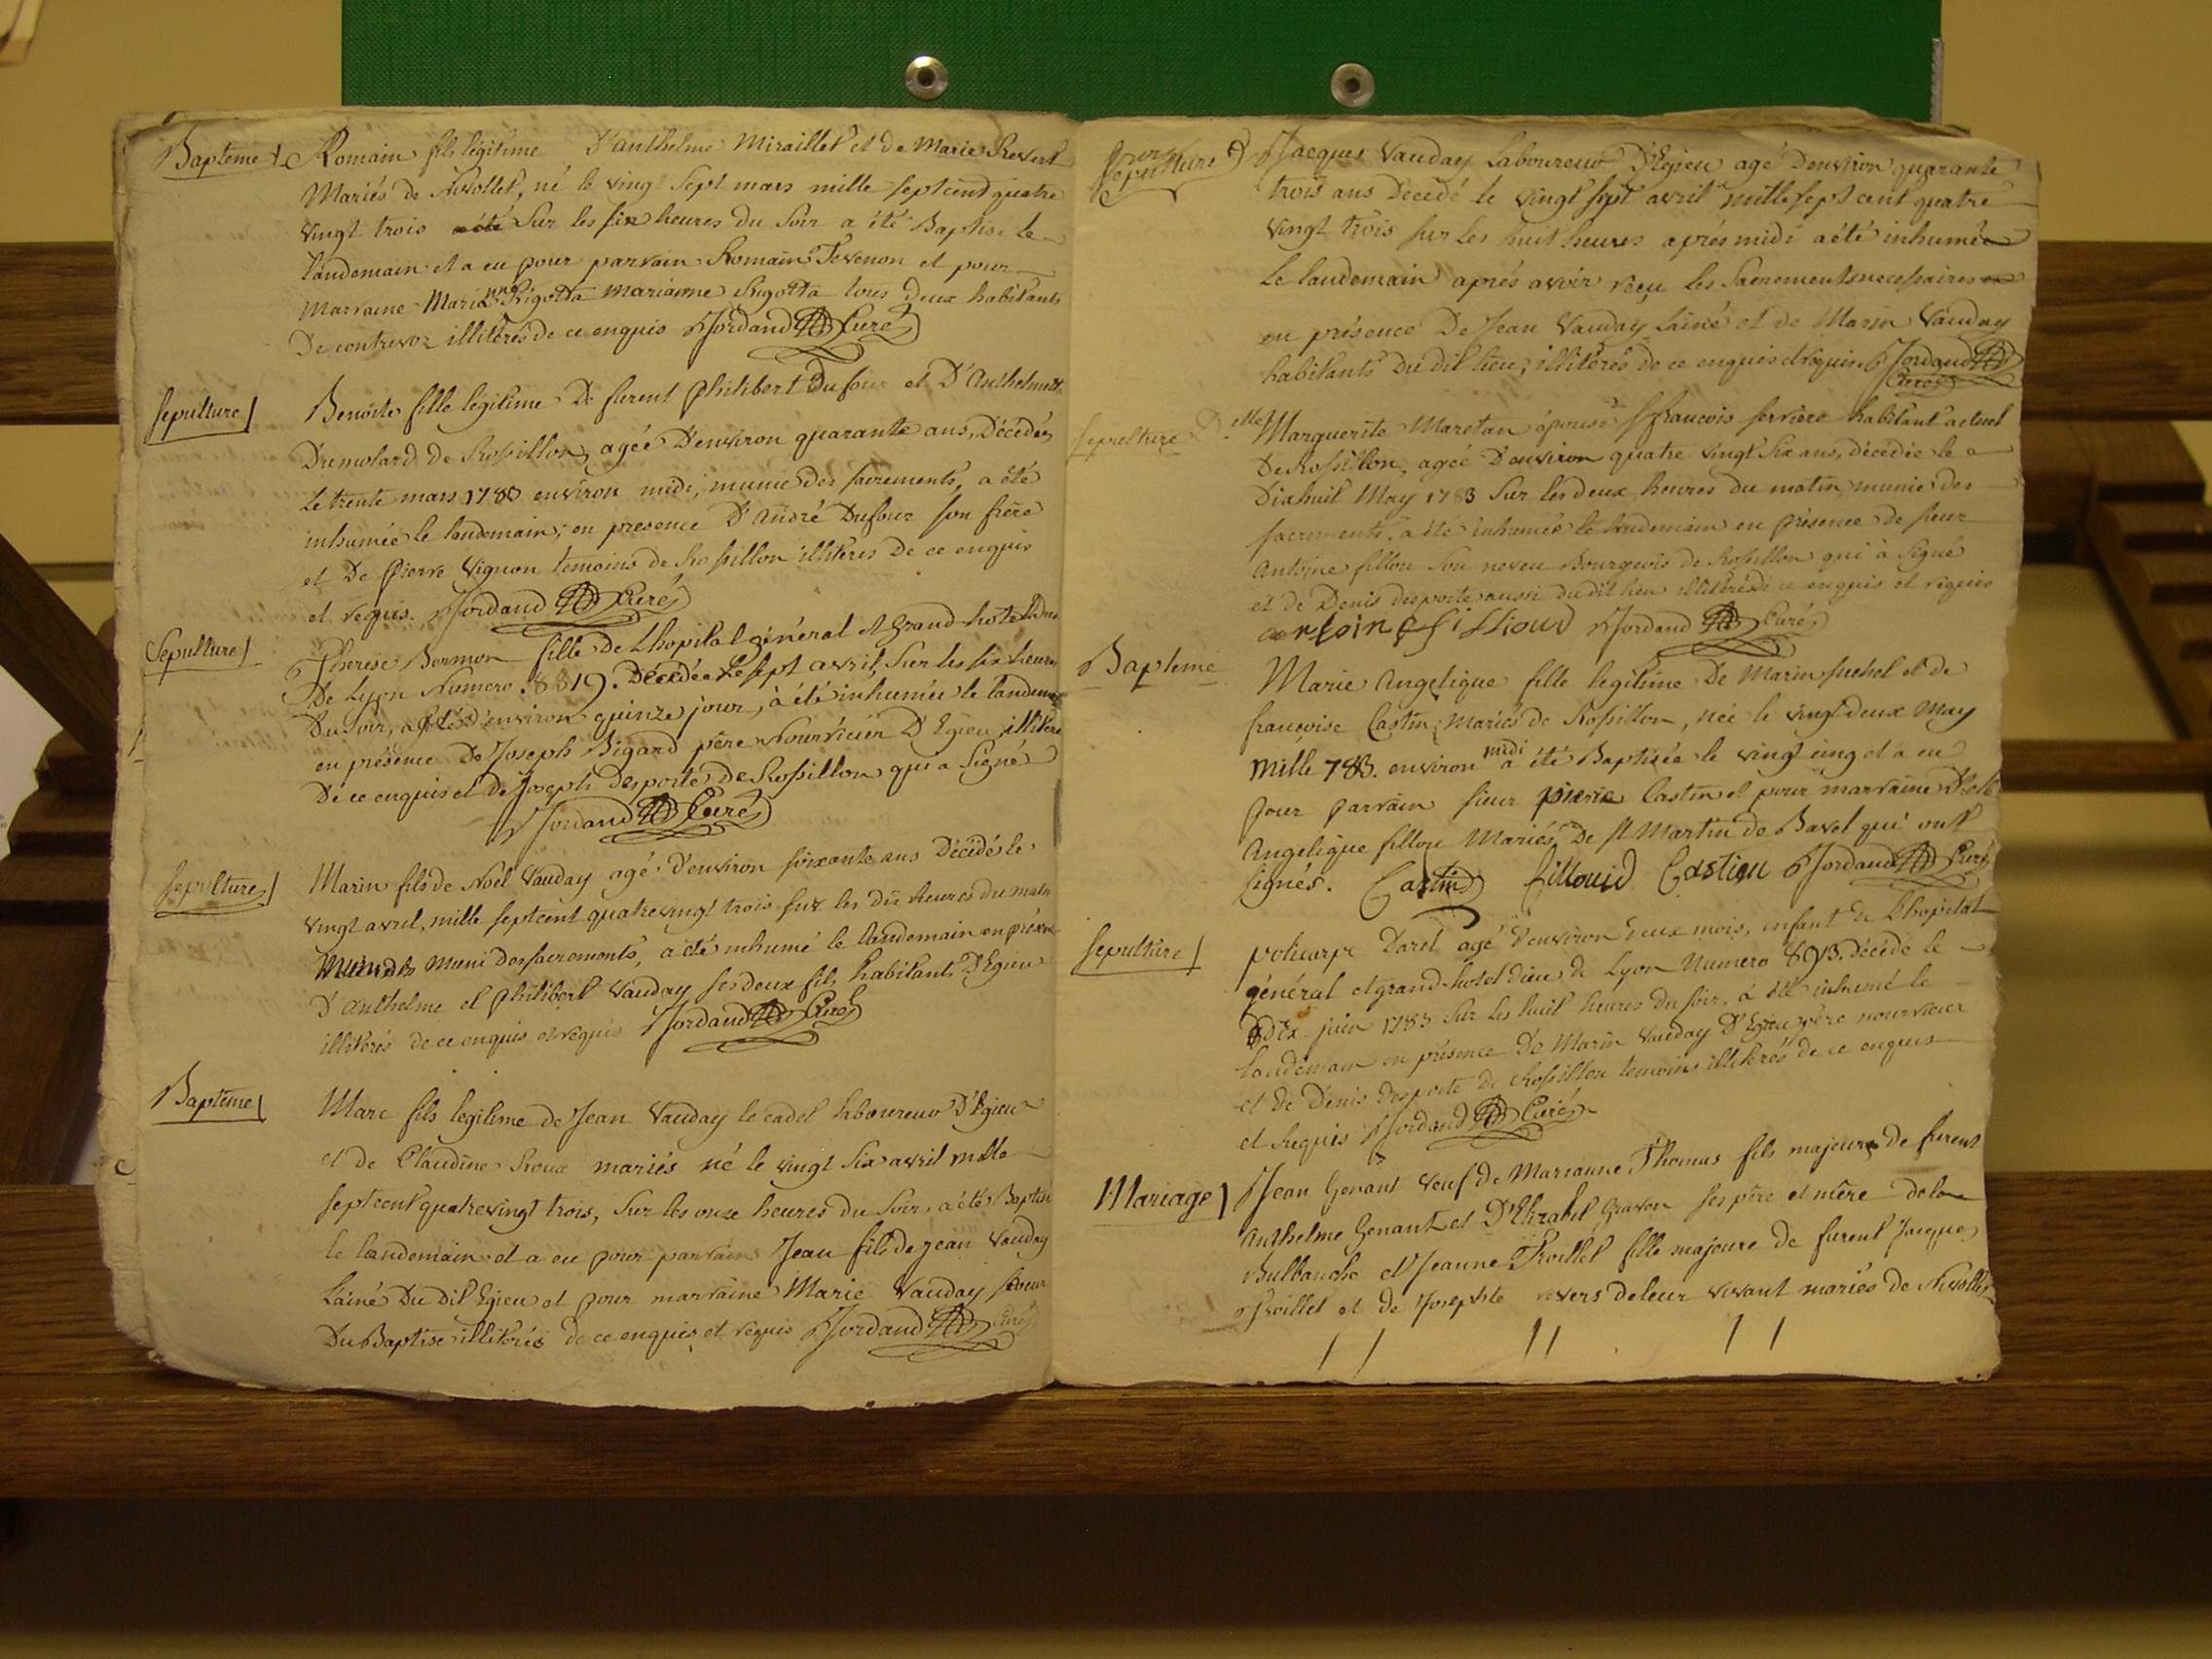 Baptême Romain fils légitime D'anthelme Miraillet et de Marie Revert
Mariés de Nivollet, né le vingt Sept mars mille sept cent quatre
vingt trois a été Sur les six heures du Soir a été Baptisé le
landemain et a eu pour parrain Romain Tevenon et pour
Marraine Marie Rigotta Marianne Rigotta tous deux habitants
De contrevoz illiterés de ce enquis Jordand Curé
sepulture Benoite fille légitime De furent philibert Dufour et D'Anthelmette
Dumolard de Rossillon, agée D'environ quarante ans, Décédée
Le trente mars 1783 environ midi, munie des sacrements, a été
inhumée le landemain, en presence D'André Dufour son frère
et De pierre Vignon temoins de Rossillon illiterés De ce enquis
et requis. Jordand Curé
Sepulture Therese Bonmon fille de Lhopital général et Grand hotel dieu
De Lyon Numero 8819. Décédée Le sept avril, Sur les six heures
Du Soir, agée D'environ quinze jour, à été inhumée le landemain
en présence De Joseph Bigard père Nourricier D'Egieu illitere
De ce enquis et de Joseph Desporte de Rossillon qui a Signé
Jordand Curé
sepulture Marin fils de Noel Vauday agé D'environ soixante ans Décédé le
vingt avril, mille sept cent quatre vingt trois sur les dix heures du matin
Muni des sacrements, a été inhumé le landemain en présence
D'anthelme et philibert Vauday ses deux fils habitants D'Egieu
illiterés de ce enquis et requis Jordand Curé
Baptême Marc fils legitime de Jean Vauday le cadet laboureur D'Egieu
et de Claudine Roux mariés né le vingt six avril mille
sept cent quatre vingt trois, Sur les onze heures du Soir a été Baptisé
le landemain et a eu pour parrain Jean fils de jean Vauday
Lainé Du dit Egieu et pour marraine Marie Vauday soeur
Du Baptisé illiterés de ce enquis et requis Jordand Curé
Sepulture Jacques Vauday Laboureur D'Egieu agé D'environ quarante
trois ans Décédé le vingt sept avril mille sept cent quatre
vingt trois sur les huit heures aprés midi a été inhumé
le landemain aprés avoir reçu les Sacrements necessaires
en présence De Jean Vauday Lainé et de Marin Vauday
habitants Du dit lieu, illiterés de ce enquis et requis Jordand
Curé
sepulture D.elle Marguerite Maretan épouse S françois serriere habitant actuel
De Rossillon, agée D'environ quatre vingt six ans, décédée le
Dixhuit May 1783 Sur les deux heures du matin, munie des
sacrements, a été inhumée le landemain en présence de sieur
Antoine fillou Son neveu Bourgeois de Rossillon qui à Signé
et de Denis desporte aussi du dit lieu illiteré de ce enquis et requis
Jordand Curé
Bapteme Marie Angelique fille legitime De Marin et de
françoise Castin mariés de Rossillon, née le vingt deux May
Mille 783. environ midi a été Baptisée le vingt cinq et à eu
pour parrain sieur pierre Castin et pour marraine D.elle
Angelique fillou Mariés De St Martin de Bavel qui ont
signés. Castin fillouid Castieu Jordand Curé
sepulture policarpe Darel agé D'environ deux mois, enfant de Lhopital
général et grand hotel dieu de Lyon Numero 893. Décédé le
dix juin 1783 Sur les huit heures Du Soir, à été inhumé le
landemain en présence De Marin Vauday D'Egieu père nourricier
et de Denis Desporte de Rossillon temoins illiterés de ce enquis
et Requis Jordand Curé
Mariage Jean Genant Veuf de Marianne Thomas fils majeur de furent
Anthelme Genant et D'Elizabet Gravon ses père et mère de la
Balbanche et Jeanne Troillet fille majeure de furent Jacque
Troillet et de Josephte revers de leur vivant mariés de Nivollet